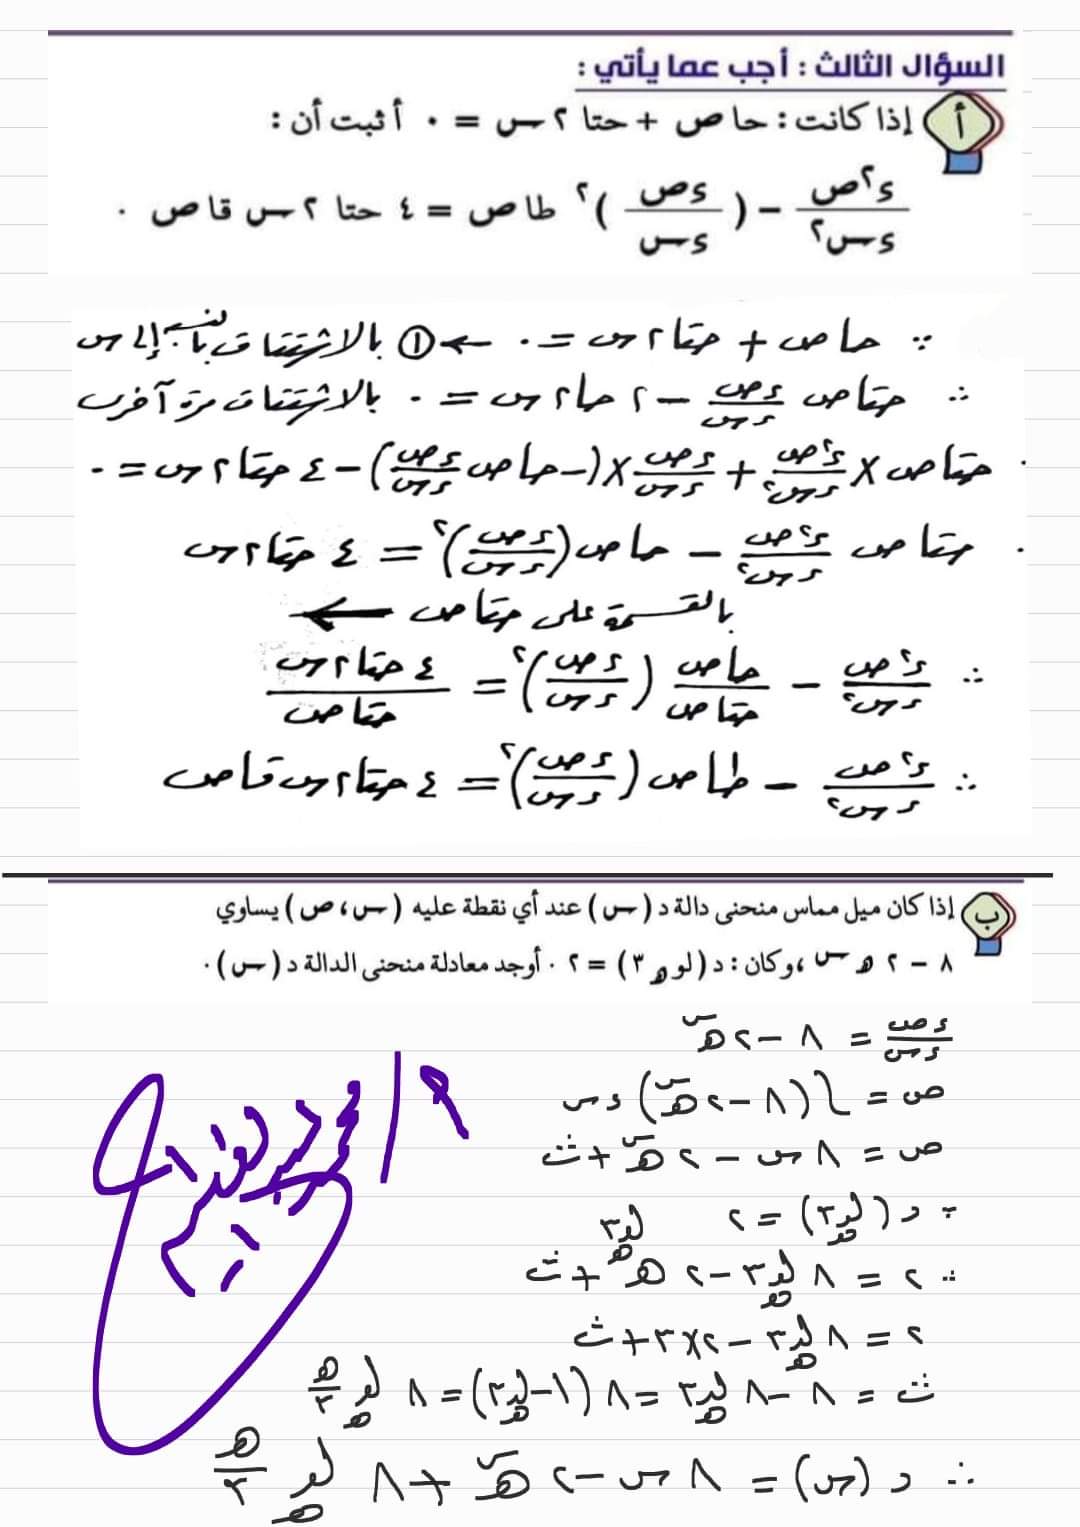 السؤال الثالث : أجب عما يأتي :
أ إذا كانت : حا ص + حتا ٢ س = ٠ أثبت أن :
ء٢ص/ءس٢ − (ءص/ءس)٢ طا ص = ٤ حتا ٢ س قا ص .
∵ حا ص + حتا ٢ س = ٠ ← ① بالاشتقاق بالنسبة إلى س
∴ حتا ص ءص/ءس − ٢ حا ٢ س = ٠ بالاشتقاق مرة آخرى
حتا ص × ء٢ص/ءس٢ + ءص/ءس × (−حا ص ءص/ءس) − ٤ حتا ٢ س = ٠
حتا ص ء٢ص/ءس٢ − حا ص (ءص/ءس)٢ = ٤ حتا ٢ س
بالقسمة على حتا ص ←
∴ ء٢ص/ءس٢ − حا ص/حتا ص (ءص/ءس)٢ = ٤ حتا ٢ س/حتا ص
∴ ء٢ص/ءس٢ − طا ص (ءص/ءس)٢ = ٤ حتا ٢ س قا ص
ب إذا كان ميل مماس منحنى دالة د (س) عند أي نقطة عليه (س، ص) يساوي
٨ − ٢ هـ^س ، وكان : د (لو هـ ٣) = ٢ . أوجد معادلة منحنى الدالة د (س) .
ءص/ءس = ٨ − ٢ هـ^س
ص = ∫(٨ − ٢ هـ^س) ءس
ص = ٨ س − ٢ هـ^س + ث
∵ د (لو هـ ٣) = ٢
∴ ٢ = ٨ لو هـ ٣ − ٢ هـ^(لو هـ ٣) + ث
٢ = ٨ لو هـ ٣ − ٢×٣ + ث
ث = ٨ − ٨ لو هـ ٣ = ٨ (١ − لو هـ ٣) = ٨ لو هـ هـ/٣
∴ د (س) = ٨ س − ٢ هـ^س + ٨ لو هـ هـ/٣